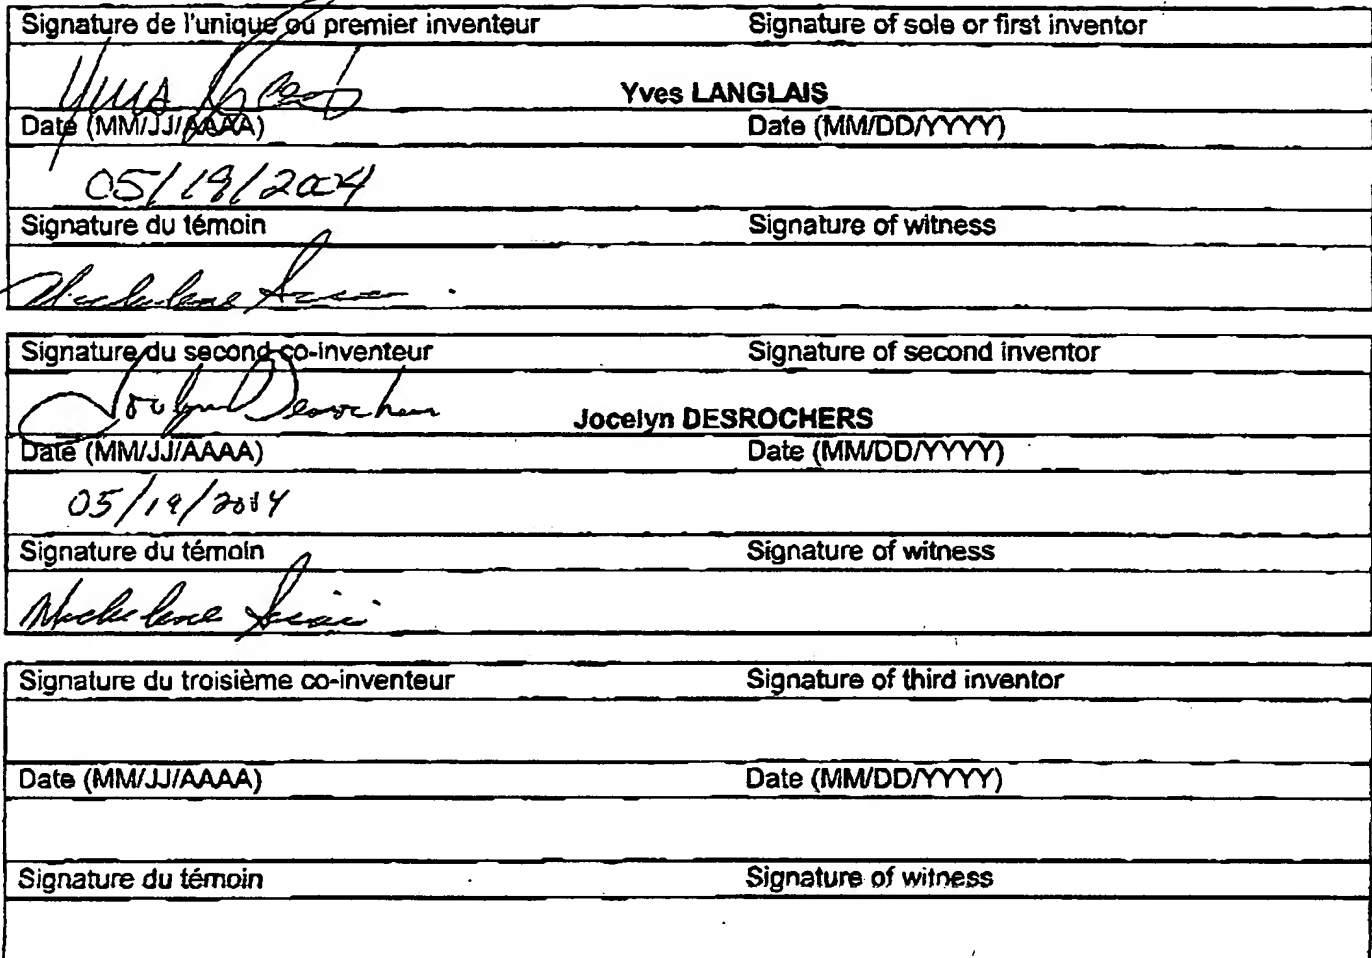 Signature de l'unique ou premier inventeur Signature of sole or first inventor
Yves LANGLAIS
Date (MM/JJ/AAAA) Date (MM/DD/YYYY)
05/19/2004
Signature du témoin Signature of witness
Signature du second co-inventeur Signature of second inventor
Jocelyn Desrochers Jocelyn DESROCHERS
Date (MM/JJ/AAAA) Date (MM/DD/YYYY)
05/19/2004
Signature du témoin Signature of witness
Signature du troisième co-inventeur Signature of third inventor
Date (MM/JJ/AAAA) Date (MM/DD/YYYY)
Signature du témoin Signature of witness